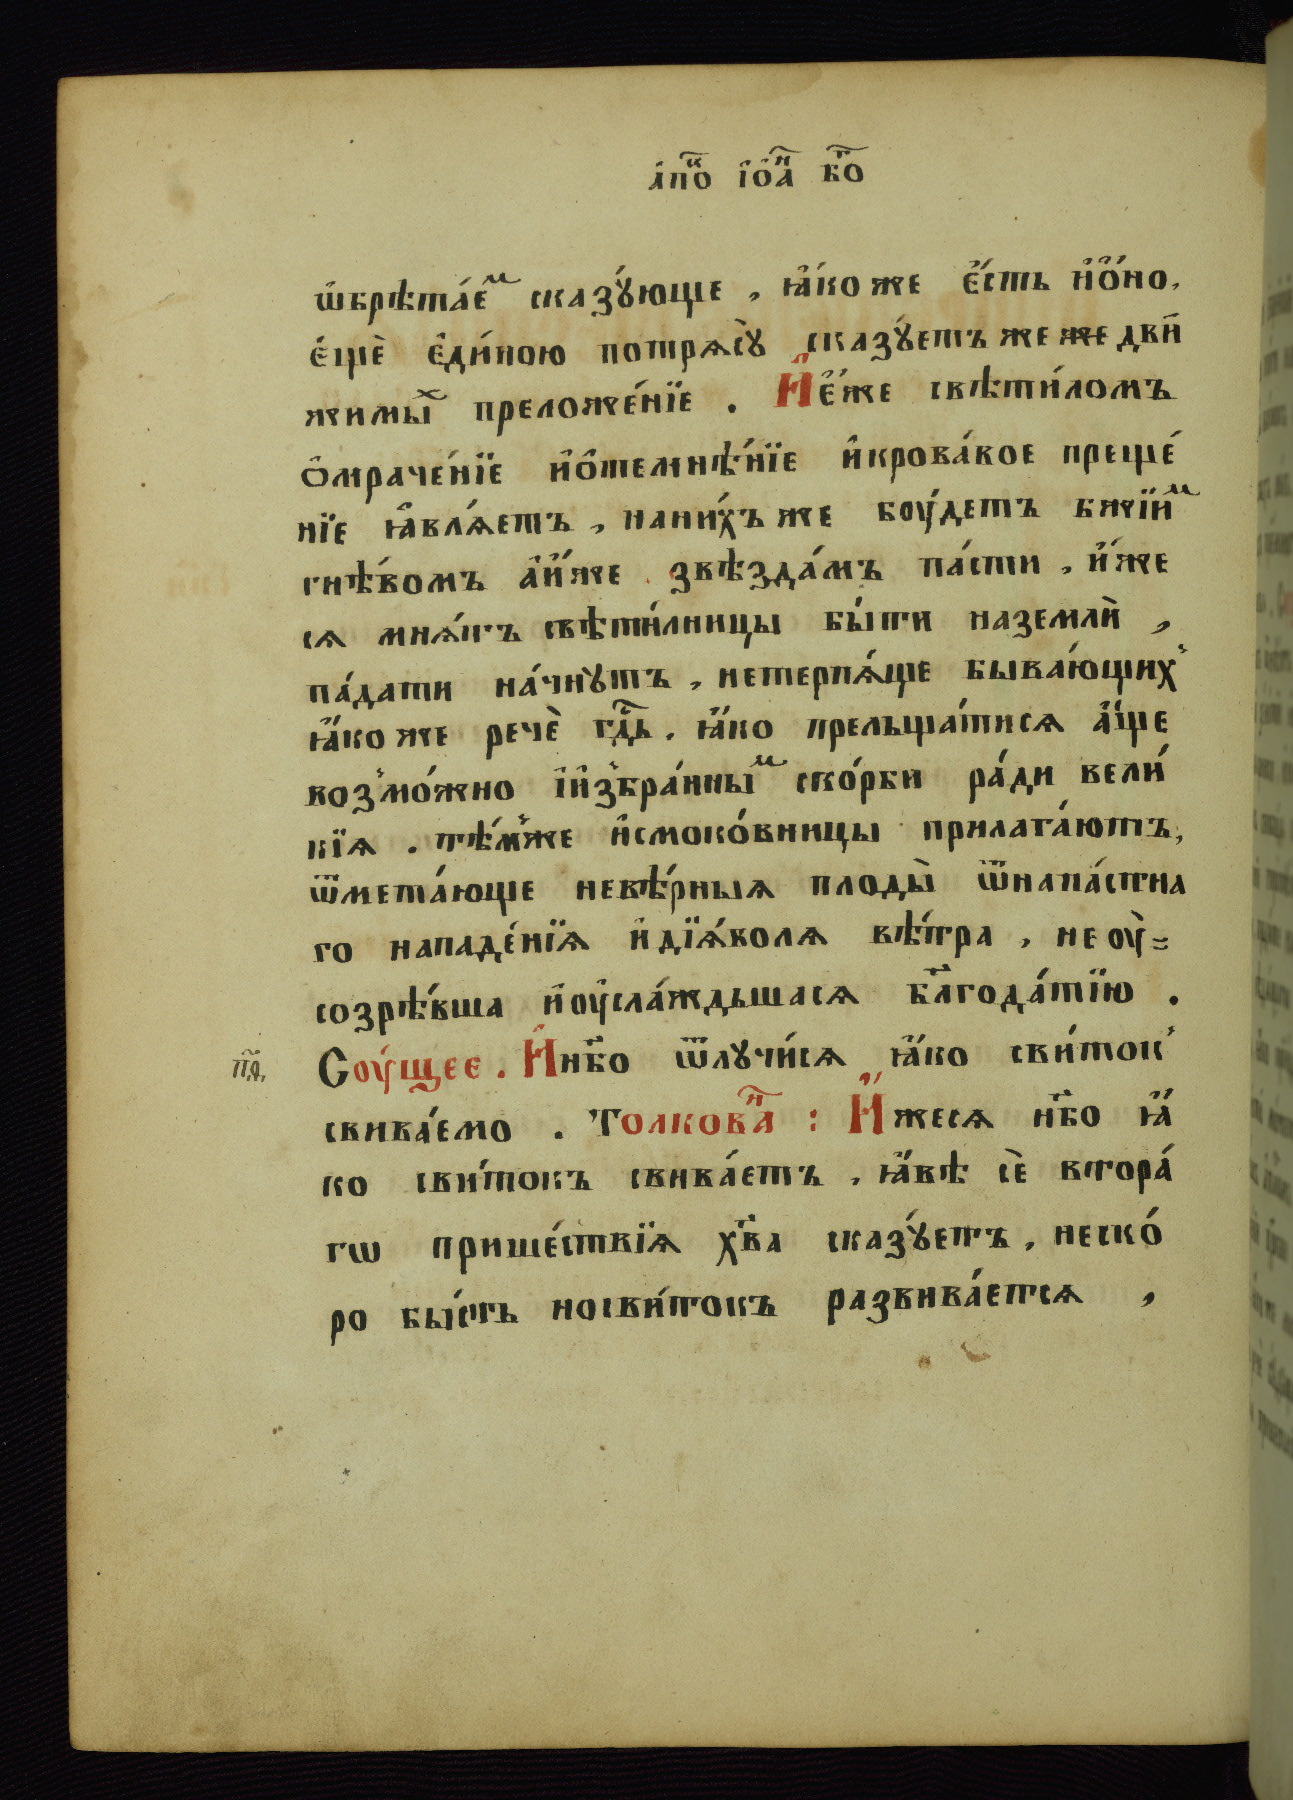 а҆пⷭ҇о і҆о҆а́ⷩ҇ бг҃о
ѡ҆брѣта́еⷨ сказꙋ́юще, ꙗ҆́коже є҆́сть и҆ѻ҆́но,
є҆щѐ є҆ди́ною потрѧсꙋ̀ сказꙋ́етъ же же дви́
жимыⷯ преложе́нїе. И҆ є҆́же свѣти́ломъ
ѻ҆мраче́нїе и҆ѻ҆темнѣ́нїе и҆крова́кое преще́
нїе ꙗ҆влѧ́етъ, нани́хъ же боу́детъ бж҃їиⷨ
гнѣ́вомъ а҆и҆́же звѣзда́мъ па́сти, и҆́же
сѧ мнѧ́тъ свѣти́лницы бы́ти наземлѝ,
па́дати на́чнꙋтъ, нетерпѧ́ще быва́ющихъ
ꙗ҆́коже речѐ гдⷭ҇ь. ꙗ҆́ко прельща́тисѧ а҆́ще
возмо́жно і҆и҆збра́нныⷨ ско́рби ра́ди вели́
кїѧ. тѣ́мже и҆смоко́вницы прилага́ютъ,
ѿмета́юще невѣ́рныѧ плоды̀ ѿнапа́стна
го нападе́нїѧ и҆дїѧ́волѧ вѣ́тра, неоу҆=
созрѣ́вша и҆оу҆сла́ждьшасѧ бл҃года́тїю.
п҃д, Соу́щее. И҆нб҃о ѿлꙋчи́сѧ ꙗ҆́ко сви́токъ
свива́емо. Толковаⷩ҇: И҆́жесѧ нб҃о ꙗ҆́
ко сви́токъ свива́етъ, ꙗ҆́вѣ сѐ втора́
гѡ прише́ствїѧ хв҃а сказꙋ́етъ, неско́
ро бы́сть носви́токъ развива́етсѧ,